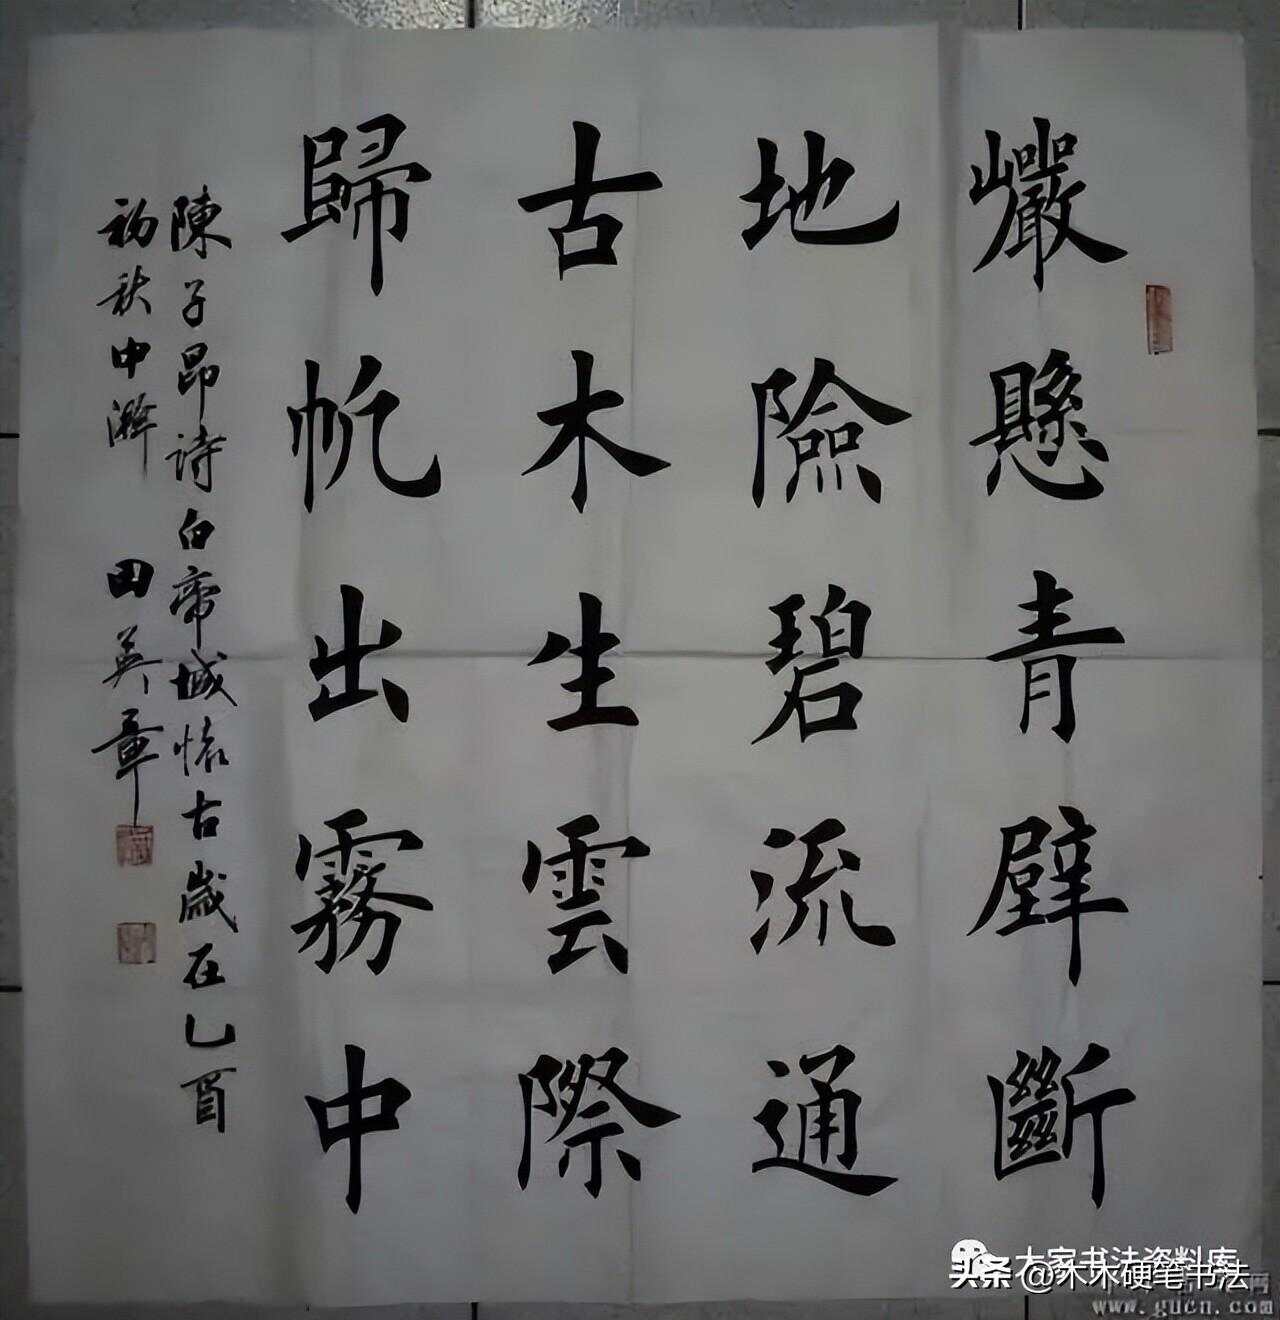 巗懸青壁斷
地險碧流通
古木生雲際
歸帆出霧中
陳子昂詩白帝城懷古歲在乙酉
初秋中澣 田英章
大家书法资料库
头条@木木硬笔书法
www.gucn.com